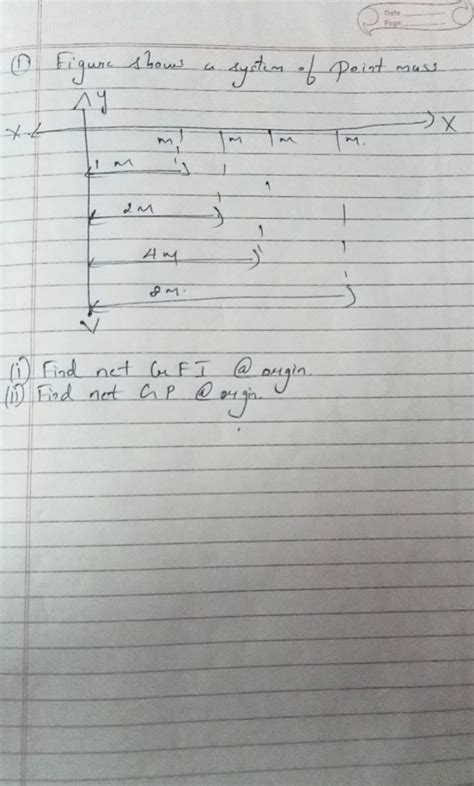 Date
Page
① Figure shows a system of point mass
y
X X
m m m m.
1 m
2m
4m
8m.
(i) Find net G F I @ origin.
(ii) Find net G P @ origin.